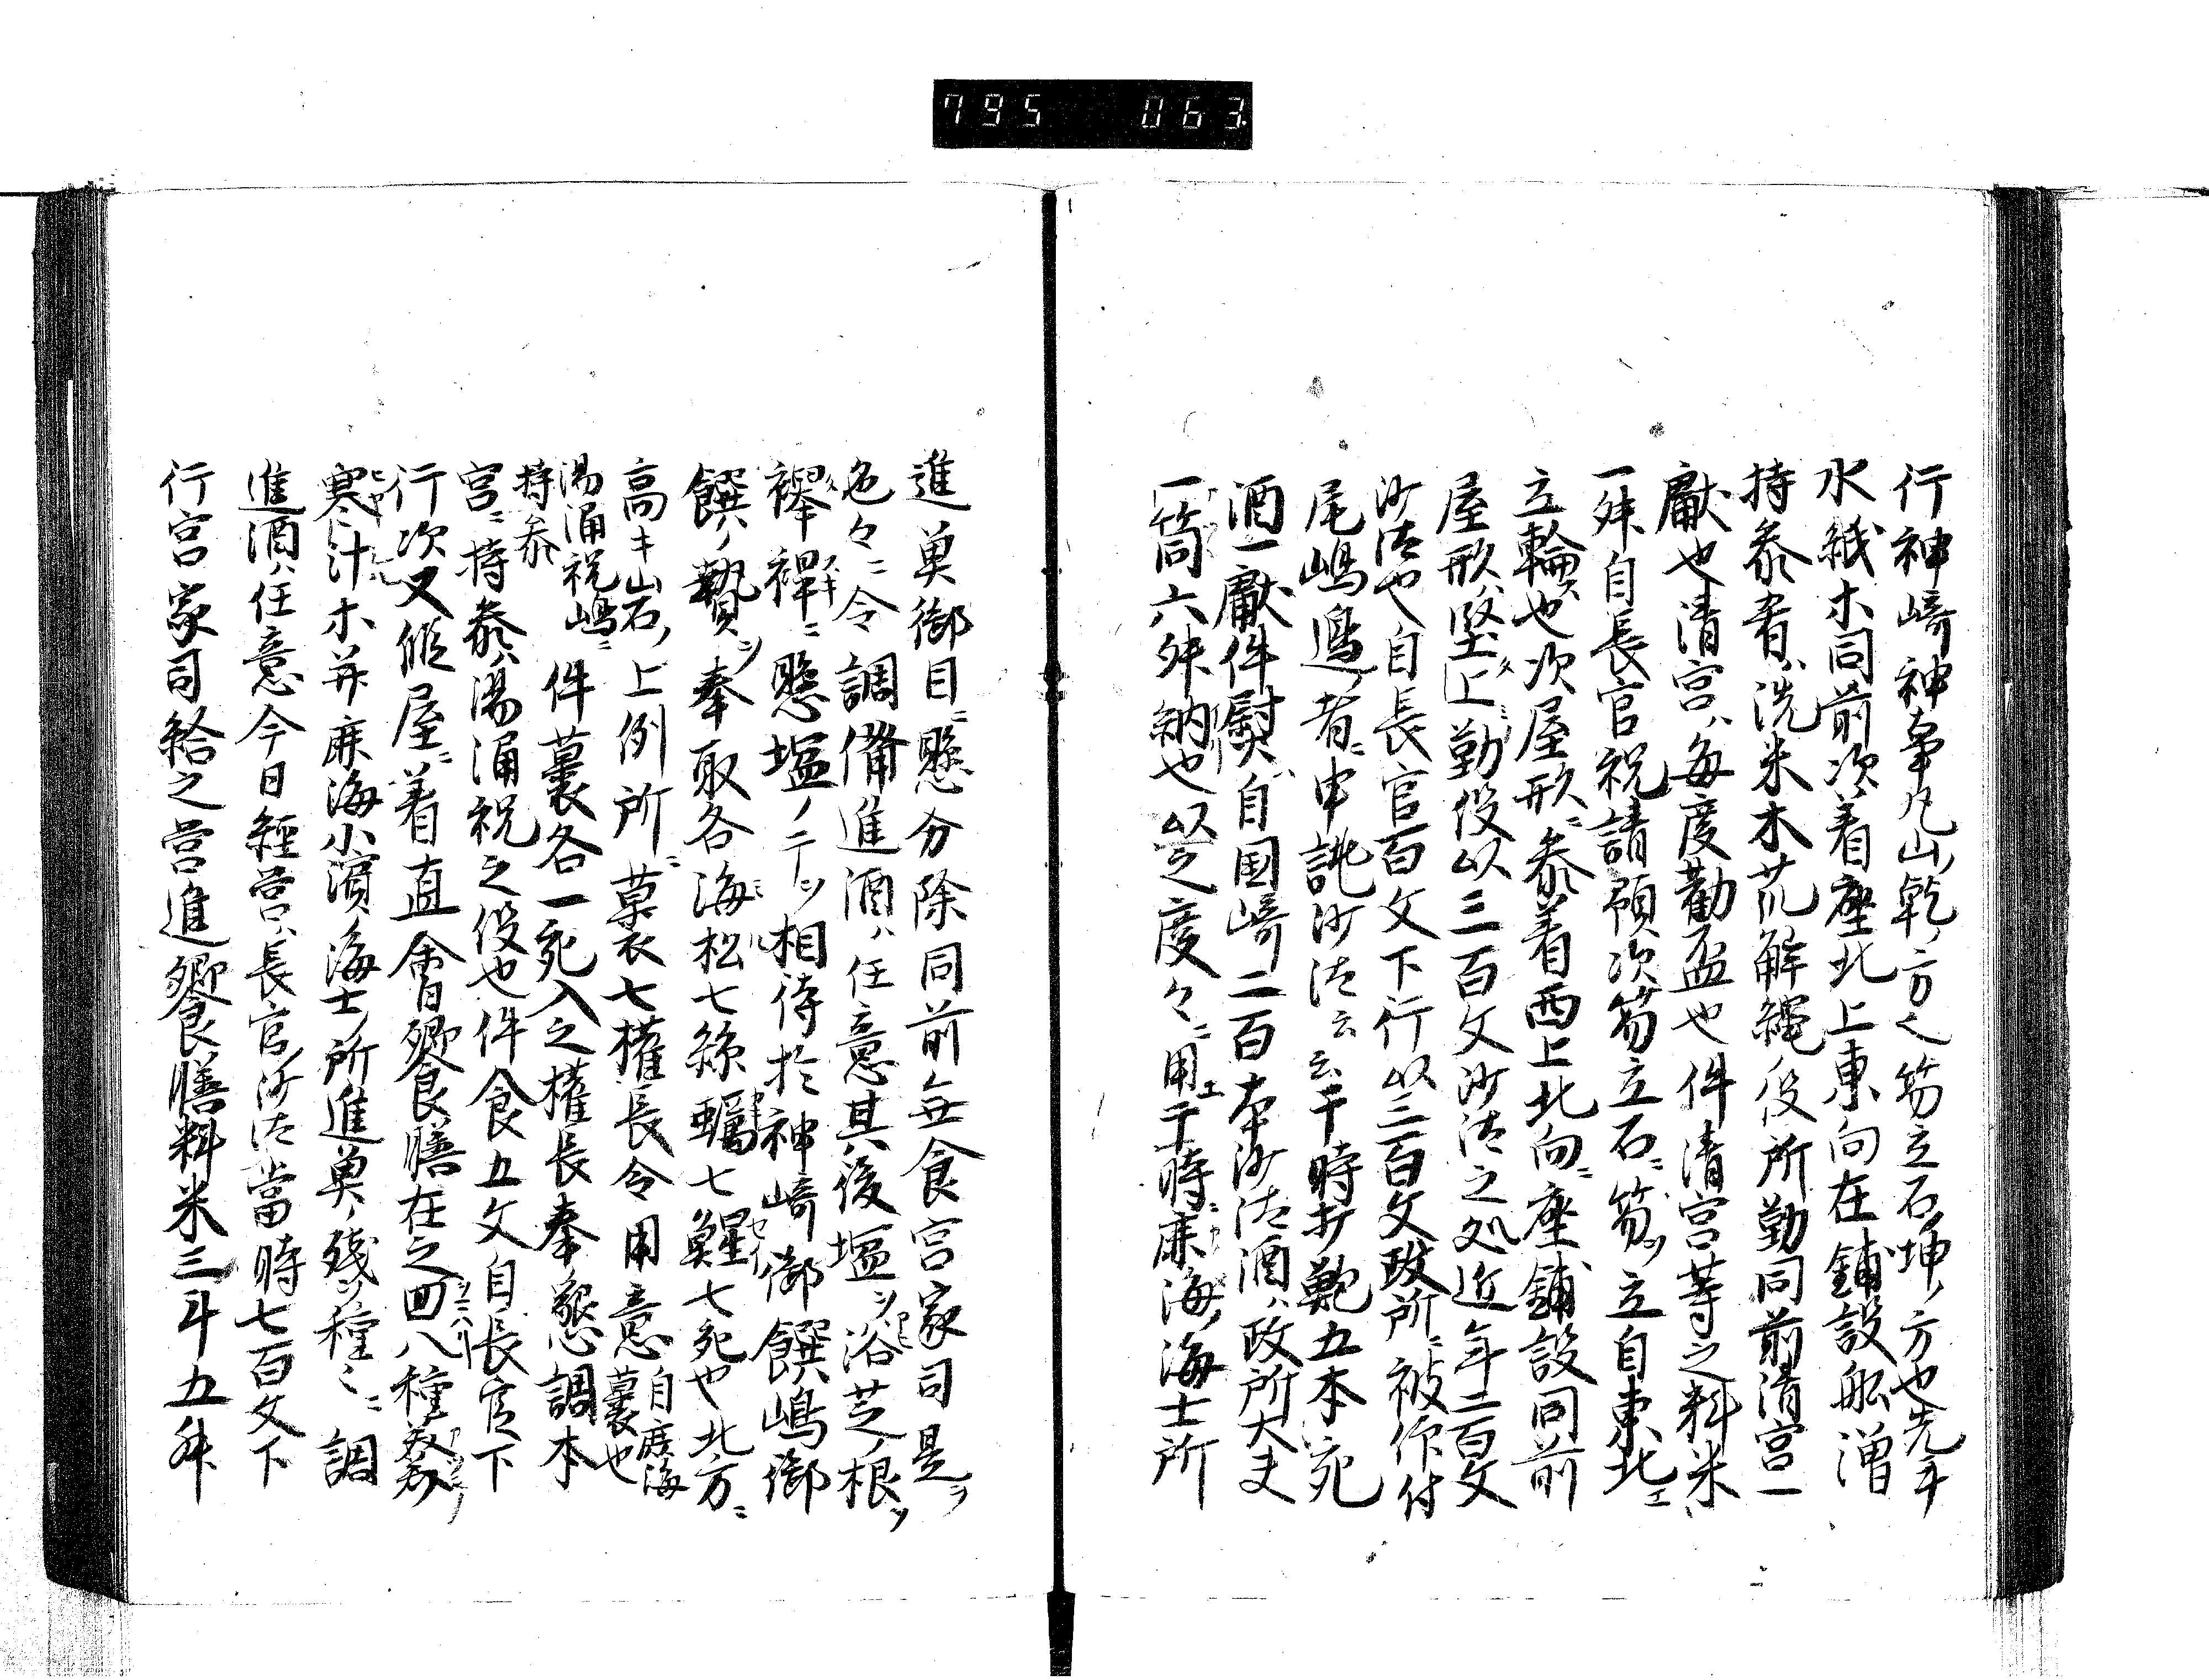 795 063
行神崎神事凡山ノ乾ノ方之笏立石ノ坤ノ方也先手
水紙木同前次着座北上東向在鋪設舩漕
持参肴ハ洗米木荒解縄役所勤同前清宮一
献也清宮ハ毎度勧盃也件清宮等之料米
一舛自長官祝請預次笏立石ニ笏ヲ立自東北エ
立輪也次屋形ニ参着西上北向ニ座鋪設同前
屋形ハ堅上勤役以三百文沙汰之処近年二百文
沙汰也自長官百文下行以三百文政所ニ被作付
尾嶋邉者ニ申誂沙汰云云于時打鮑五本宛
酒一献件熨自国崎二百本沙汰酒ハ政所大夫
一筒六舛納也以之度々ニ用エ于時麻海ノ海士所
進奠御目ニ懸分除同前無食宮家司是ヲ
色々ニ令調備進酒ハ任意其後塩ヲ浴芝ノ根ヲ
襷襅ニ懸塩ノ干ヲ相待於神崎御饌嶋御
饌ノ贄ヲ奉取各海松七絲蠣七鯹七宛也北方ニ
高キ山石ノ上例所ニ菓裹七權長令用意自麻海裹也
湯涌祝嶋ニ持参件裹各一宛入之權長奉懇調本
宮ニ持参ハ湯涌祝之役也件食五文自長官下
行次又假屋ニ着直會饗膳在之四八種蒭
寒汁木并麻海小濱ノ海士所進奠ノ残ヲ種々ニ調
進酒ハ任意今日経営ハ長官ノ沙汰當時七百文下
行宮家司給之営進饗膳料米三斗五舛